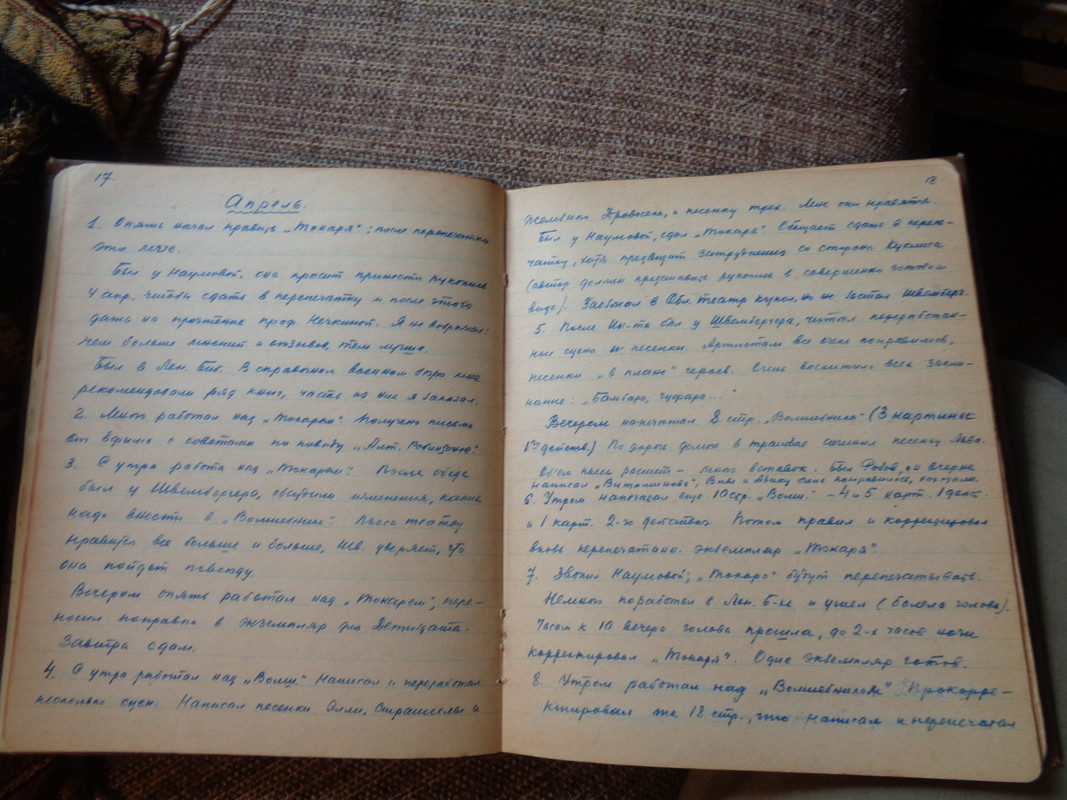 17.
Апрель.
1. Опять начал править „Токаря"; после перепечатки
это легче.
Был у Наумовой, она просит принести рукопись
4 апр., чтобы сдать в перепечатку и после этого
дать на прочтение проф. Нечкиной. Я не возражал:
чем больше мнений и отзывов, тем лучше.
Был в Лен. биб. В справочном военном бюро мне
рекомендовали ряд книг, часть из них я заказал.
2. Много работал над „Токарем". Получено письмо
от Вадима с советами по поводу „Алт. Робинзонов."
3. С утра работа над „Токарем". После обеда
был у Швембергера, обсудили изменения, какие
надо внести в „Волшебник". Пьеса театру
нравится все больше и больше, Шв. уверяет, что
она пойдет повсюду.
Вечером опять работал над „Токарем"; пере-
носил поправки в экземпляр для Детиздата.
Завтра сдам.
4. С утра работал над „Волш." Написал и переработал
несколько сцен. Написал песенки Элли, Страшилы и
18
Железного Дровосека, и песенку трех. Мне они нравятся.
Был у Наумовой, сдал „Токаря". Обещает сдать в перепе-
чатку, хотя предвидит затруднения со стороны Куклиса
(автор должен представить рукопись в совершенно готовом
виде). Заезжал в Обл. театр кукол, но не застал Швемберг.
5. После Ин-та был у Швембергера, читал переработан-
ные сцены и песенки. Артистам все очень понравилось,
песенки „в плане" героев. Очень восхитило всех закли-
нание: „Бамбара, чуфара..."
Вечером напечатал 8 стр. „Волшебника" (3 картины
1го действ.) По дороге домой в трамвае сочинил песенку Льва.
Объем пьесы растет – много вставок. Был Розов, он вечерне
6. Утром напечатал еще 10 стр. „Волш." – 4 и 5 карт. 1 дейст.
и 1 карт. 2-го действия. Потом правил и корректировал
вновь перепечатано. экземпляр „Токаря".
7. Звонил Наумовой; „Токаря" будут перепечатывать.
Немного поработал в Лен. б-ке и ушел (болела голова).
Часам к 10 вечера голова прошла, до 2-х часов ночи
корректировал „Токаря". Один экземпляр готов.
8. Утром работал над „Волшебником". Прокорре-
ктировал те 18 стр., что написал и перепечатал